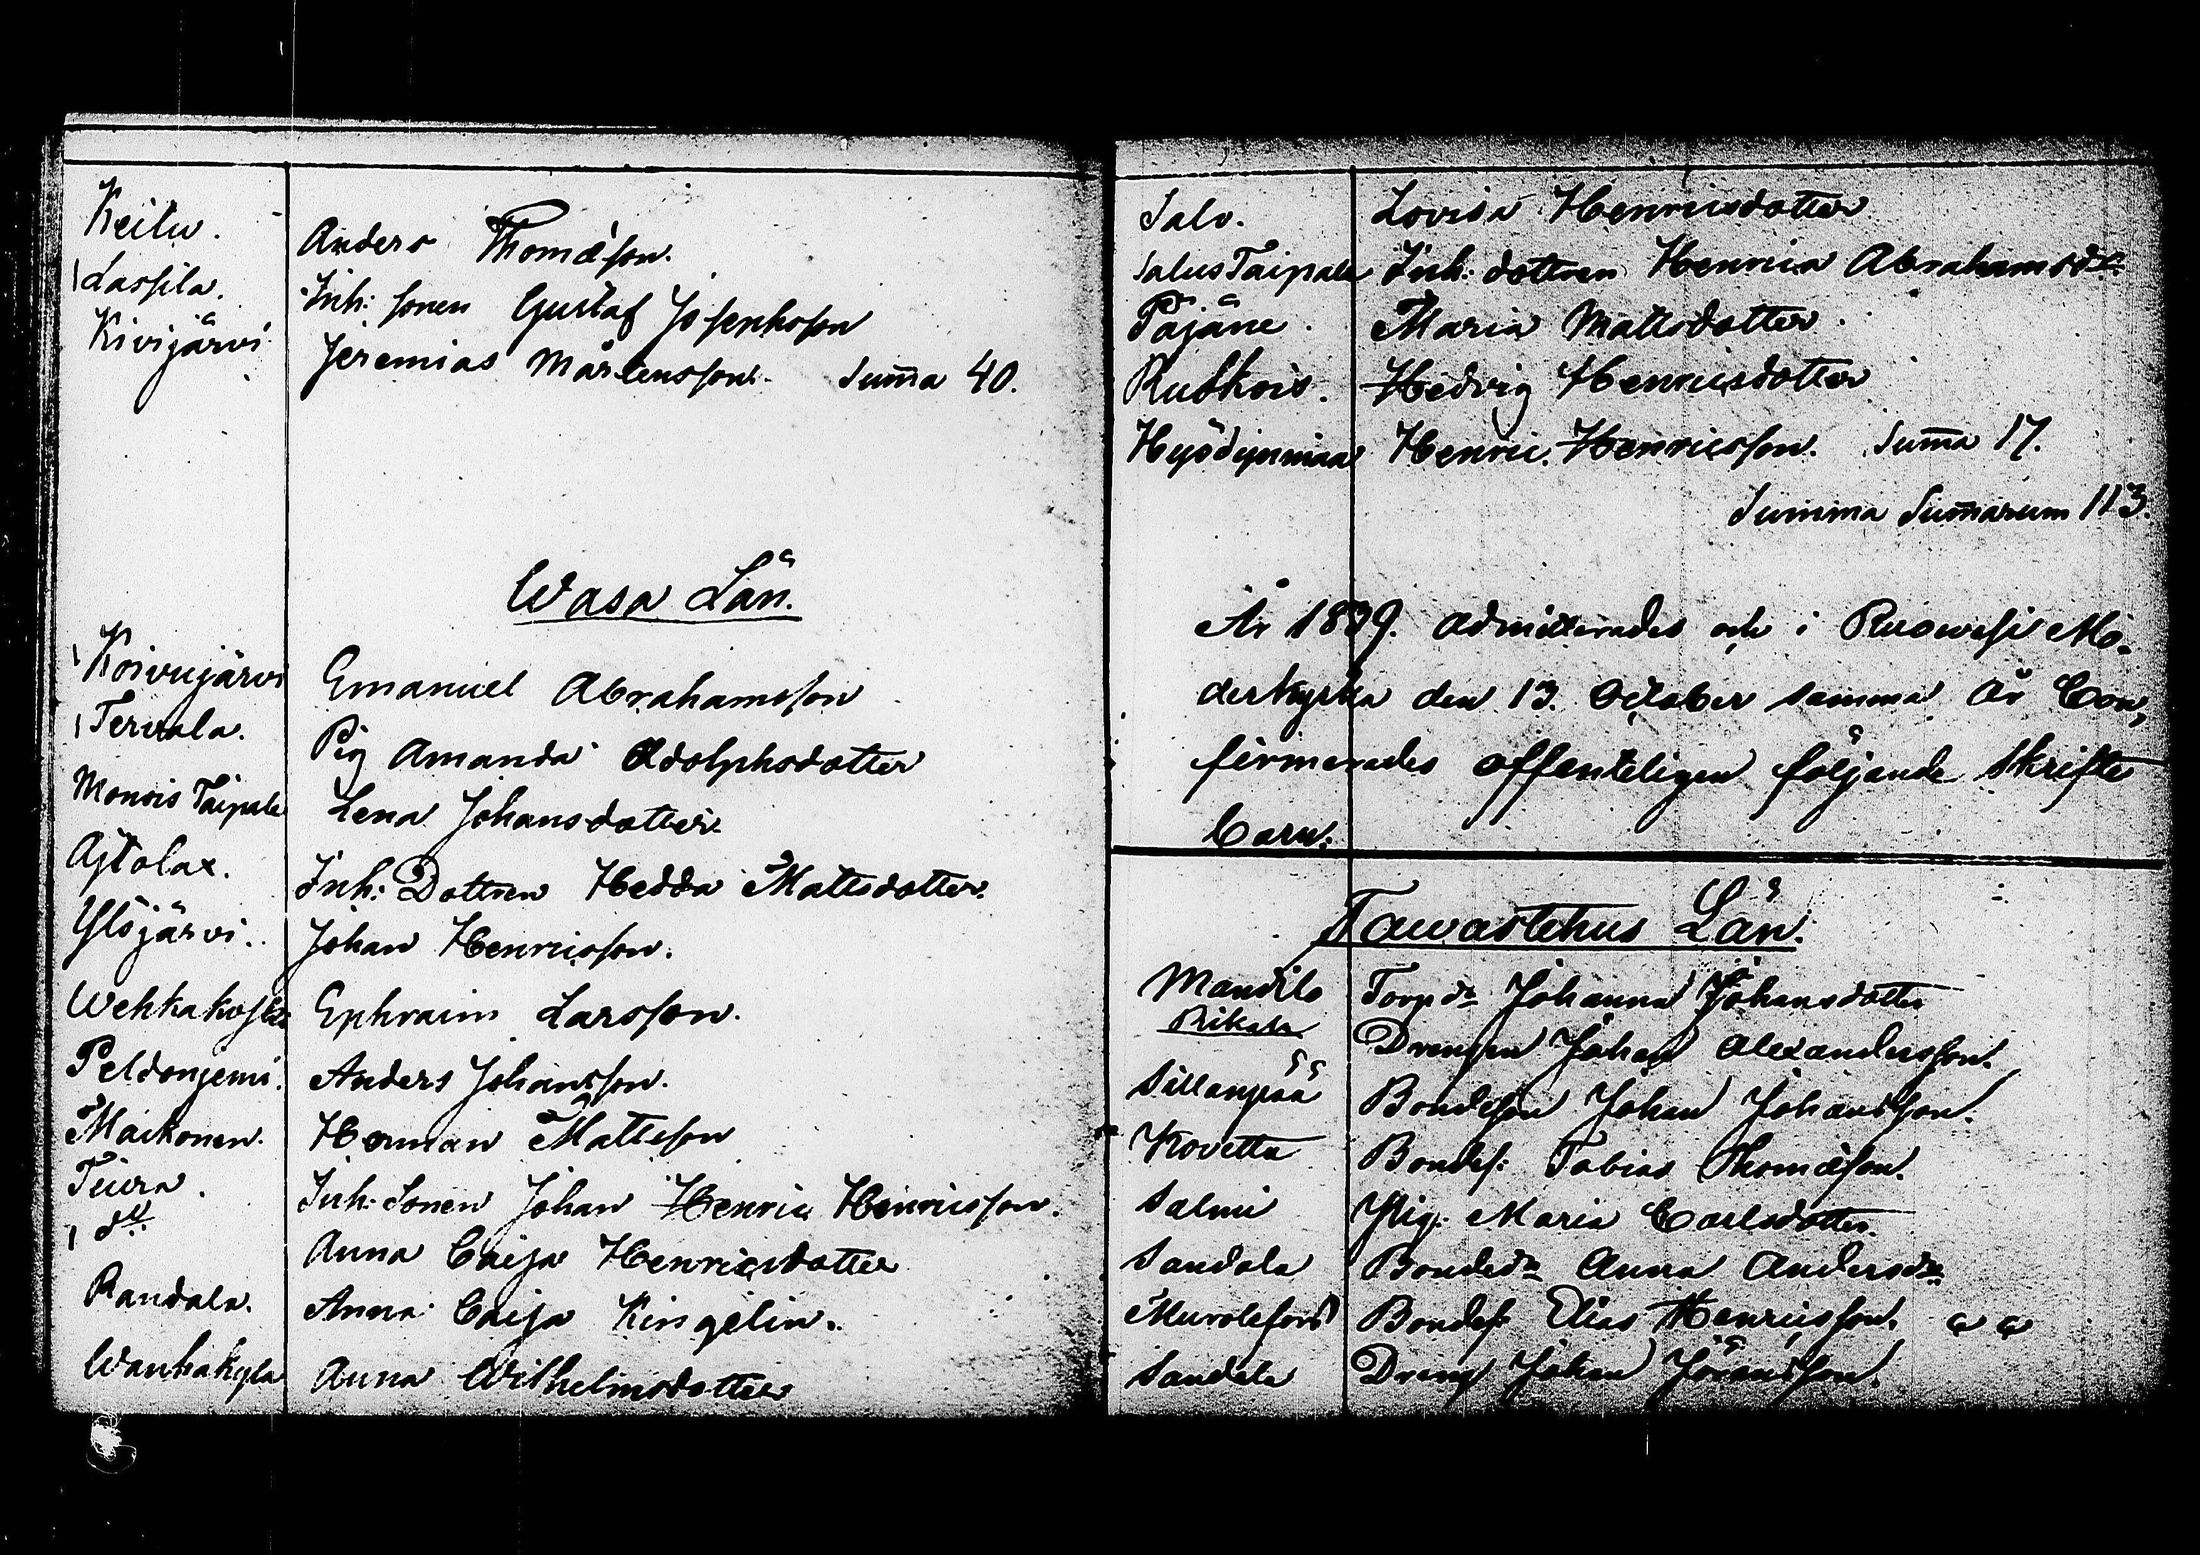 Keitu. Anders Thomæson.
Lassila. Inh: sonen Gustaf Josephsson
Kivijärvi Jeremias Mårtensson. Sum̄a 40.
Wasa Län.
Koivujärvi Emanuel Abrahamsson
Tervala. Pig Amanda Adolphsdotter
Monois Taipale Lena Johansdotter.
Ajtolax. Inh: Dottren Hedda Mattsdotter.
Ylöjärvi. Johan Henricsson.
Wehkakoski Ephraim Larsson.
Peldonjemi. Anders Johansson.
Maikonen. Herman Mattsson
Teura. Inh: Sonen Johan Henric Henricsson.
do. Anna Caisa Henricsdotter
Randala. Anna Caisa Kingelin.
Wanhakyla Anna Wilhelmsdotter
Salo. Lovisa Henricsdotter
Salus Taipale Inh: dottren Henrica Abrahamsdr.
Pajäne. Maria Mattsdotter.
Rubkois. Hedvig Henricsdotter
Hyödynmaa Henric Henricsson. Sum̄a 17.
Summa Sum̄arum 113.
År 1839. admitterades och i Ruowesi Mo-
derkyrka den 13. October samma År Con,
firmerades offenteligen följande Skrifte
Barn:
Tawastehus Län.
Mandilo Torpdr Johanna Johansdotter
Rikala Drengen Johan Alexandersson.
Sillanpää Bondeson Johan Johansson.
Kovetta Bondes: Tobias Thomæson.
Salmi Pig: Maria Carlsdotter
Sandala Bondedr Anna Andersdr
Murolefors Bondes: Elias Henricsson. a a
Sandala Dreng Johan Jöransson.